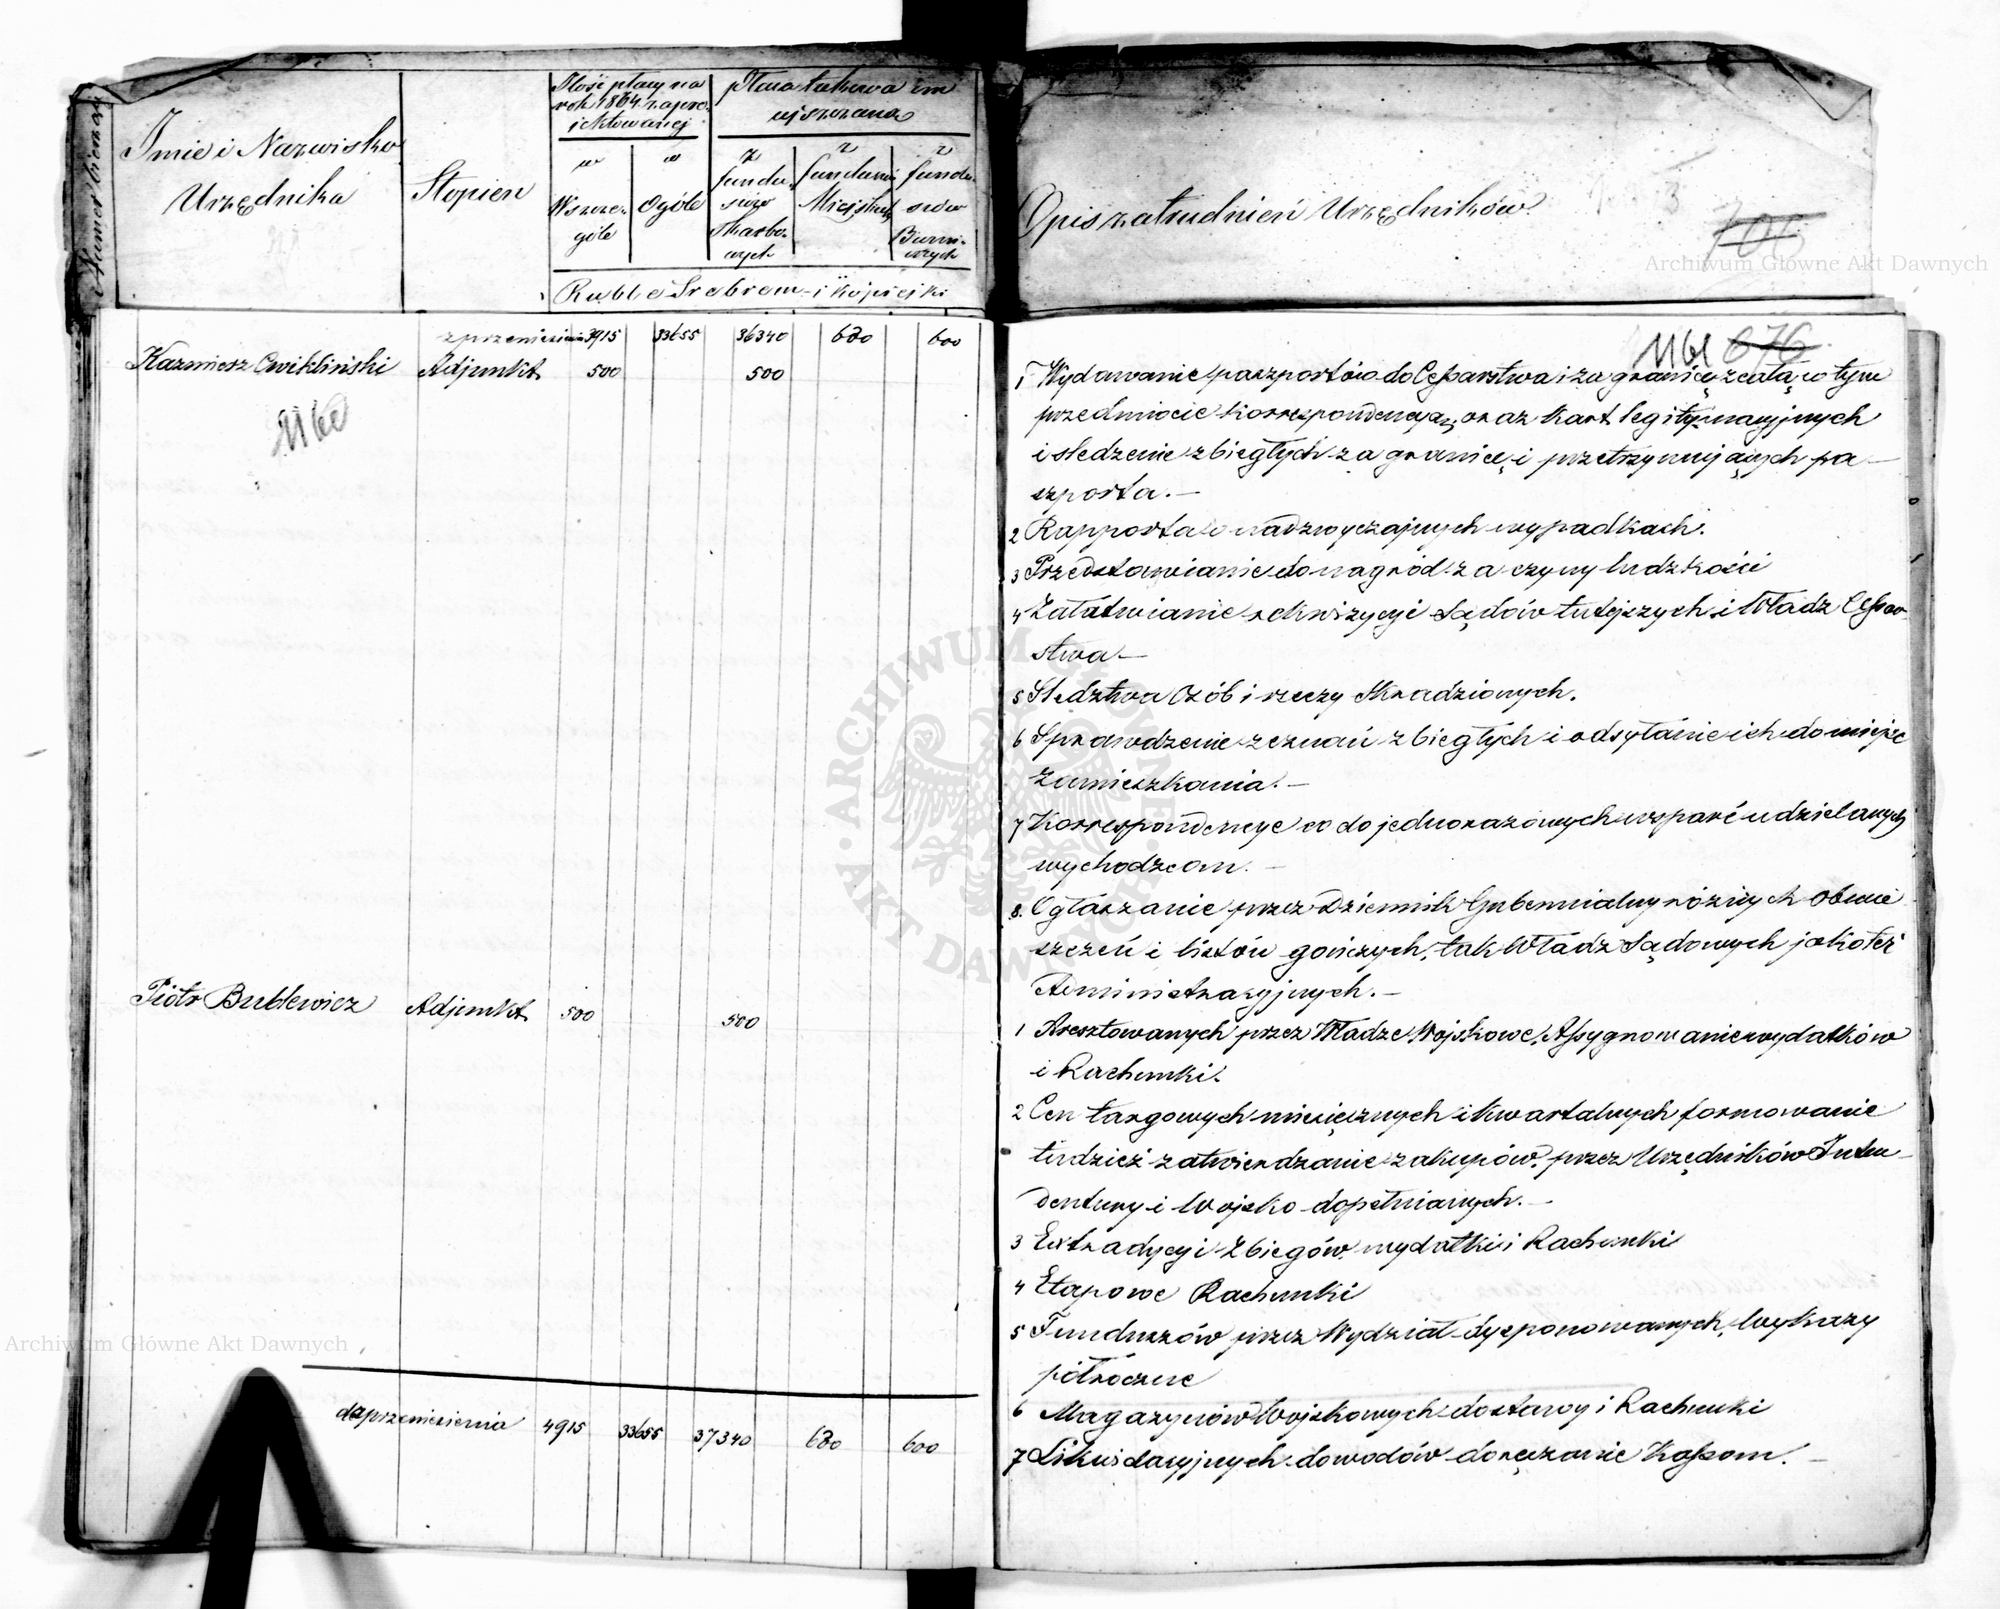 Numer bieżący
Imie i Nazwisko
Urzędnika
Stopień
Ilość płacy na
rok 1864 zapro-
jektowanej
w
Wszcze-
góle
w
Ogóle
Płaca takowa
z
fundu-
szów
Skarbo-
wych
z
funduszów
Miejskich
z
fundu-
szów
Ruble Srebrem i kopiejki
Opis zatrudnień Urzędników
706
z przeniesienia 3915 33655 36340 680 600
Kazimierz Cwikliński Adjunkt 500 500
1160
Piotr Bublewicz Adjunkt 500 500
do przeniesienia 4915 33655 37340 680 600
1161 676
1 Wydawanie paszportów do Cesarstwa i za granicę z całą w tym
przedmiocie korrespondencyą, oraz kart legitymacyjnych
i śledzenie zbiegłych za granicę i przetrzymujących pa-
szporta.—
2 Rapporta o nadzwyczajnych wypadkach.
3 Przedstawianie do nagród za czyny ludzkości
4 Załatwianie rekwizycyi Sądów tutejszych i Władz Cesar-
stwa—
5 Śledztwa Osób i rzeczy skradzionych.
6 Sprawdzenie zeznań zbiegłych i odsyłanie ich do miejsc
Zamieszkania.—
7 Korrespondencye co do jednorazowych wsparć udzielanych
wychodzcom.—
8. Ogłaszanie przez Dziennik Gubernialny różnych obwie
szczeń i listów gończych, tak Władz Sądowych jakoteż
Administracyjnych.—
1 Aresztowanych przez Władze Wojskowe, Assygnowanie wydatków
i Rachunki.
2 Cen targowych miesięcznych i kwartalnych formowanie
tudzież zatwierdzanie zakupów, przez Urzędników Inten-
dentury i Wojsko dopełnianych.—
3 Extradycyi Zbiegów wydatki i Rachunki
4 Etapowe Rachunki
5 Funduszów przez Wydział dysponowanych, wykazy
półroczne
6 Magazynów Wojskowych dostawy i Rachunki
7 Likwidacyjnych dowodów doręczanie Kassom.—
Archiwum Główne Akt Dawnych
ARCHIWUM GŁÓWNE AKT DAWNYCH
Archiwum Główne Akt Dawnych